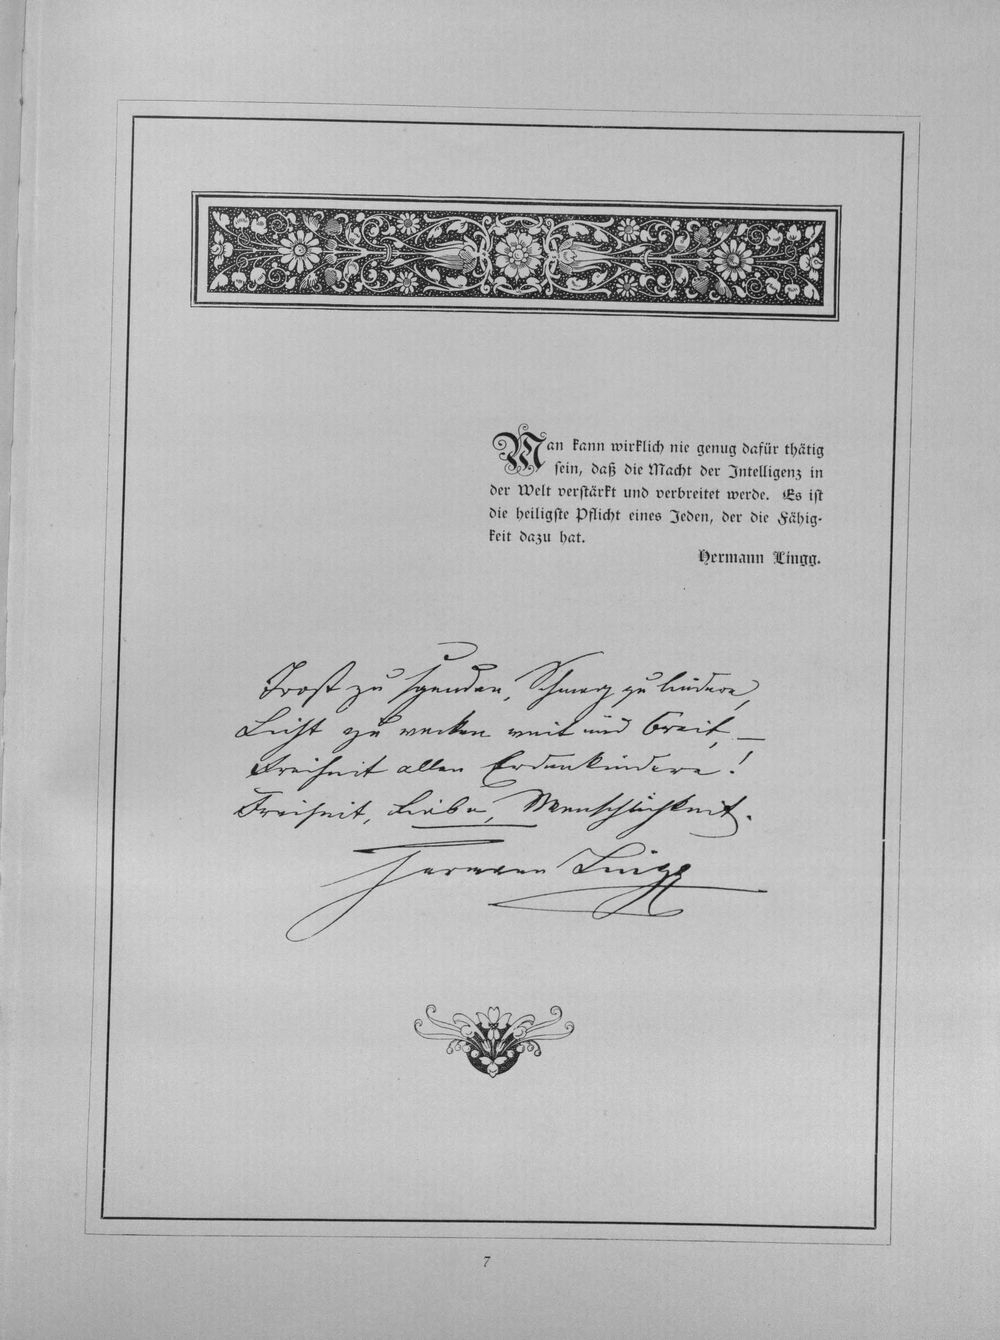 Man kann wirklich nie genug dafür thätig
sein, daß die Macht der Intelligenz in
der Welt verstärkt und verbreitet werde. Es ist
die heiligste Pflicht eines Jeden, der die Fähig-
keit dazu hat.
Hermann Lingg.
Trost zu spenden, Schmerz zu lindern,
Licht zu wecken weit und breit, —
Freiheit allen Erdenkindern!
Freiheit, Liebe, Menschlichkeit.
Hermann Lingg
7